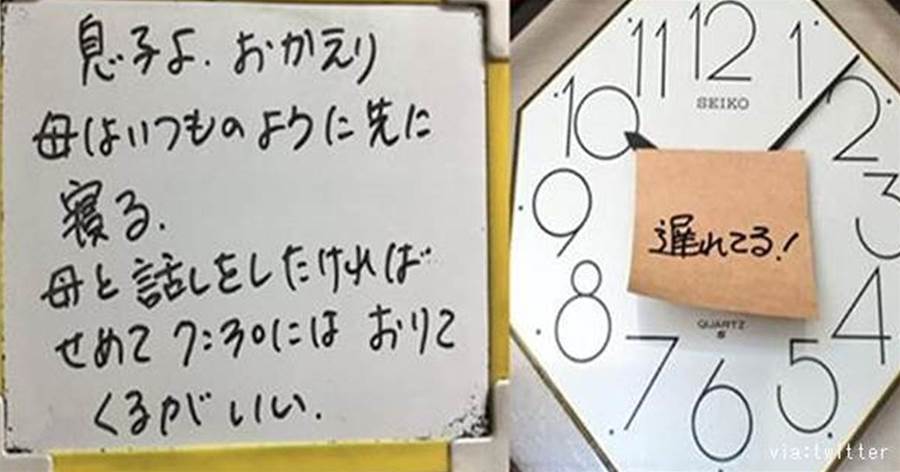 息子よ.おかえり
母はいつものように先に
寝る.
母と話しをしたければ
せめて7:30には おりて
くるがいい.
11 12 1
10 2
SEIKO
9 3
遅れてる!
8 4
QUARTZ
S
7 6 5
via:twitter